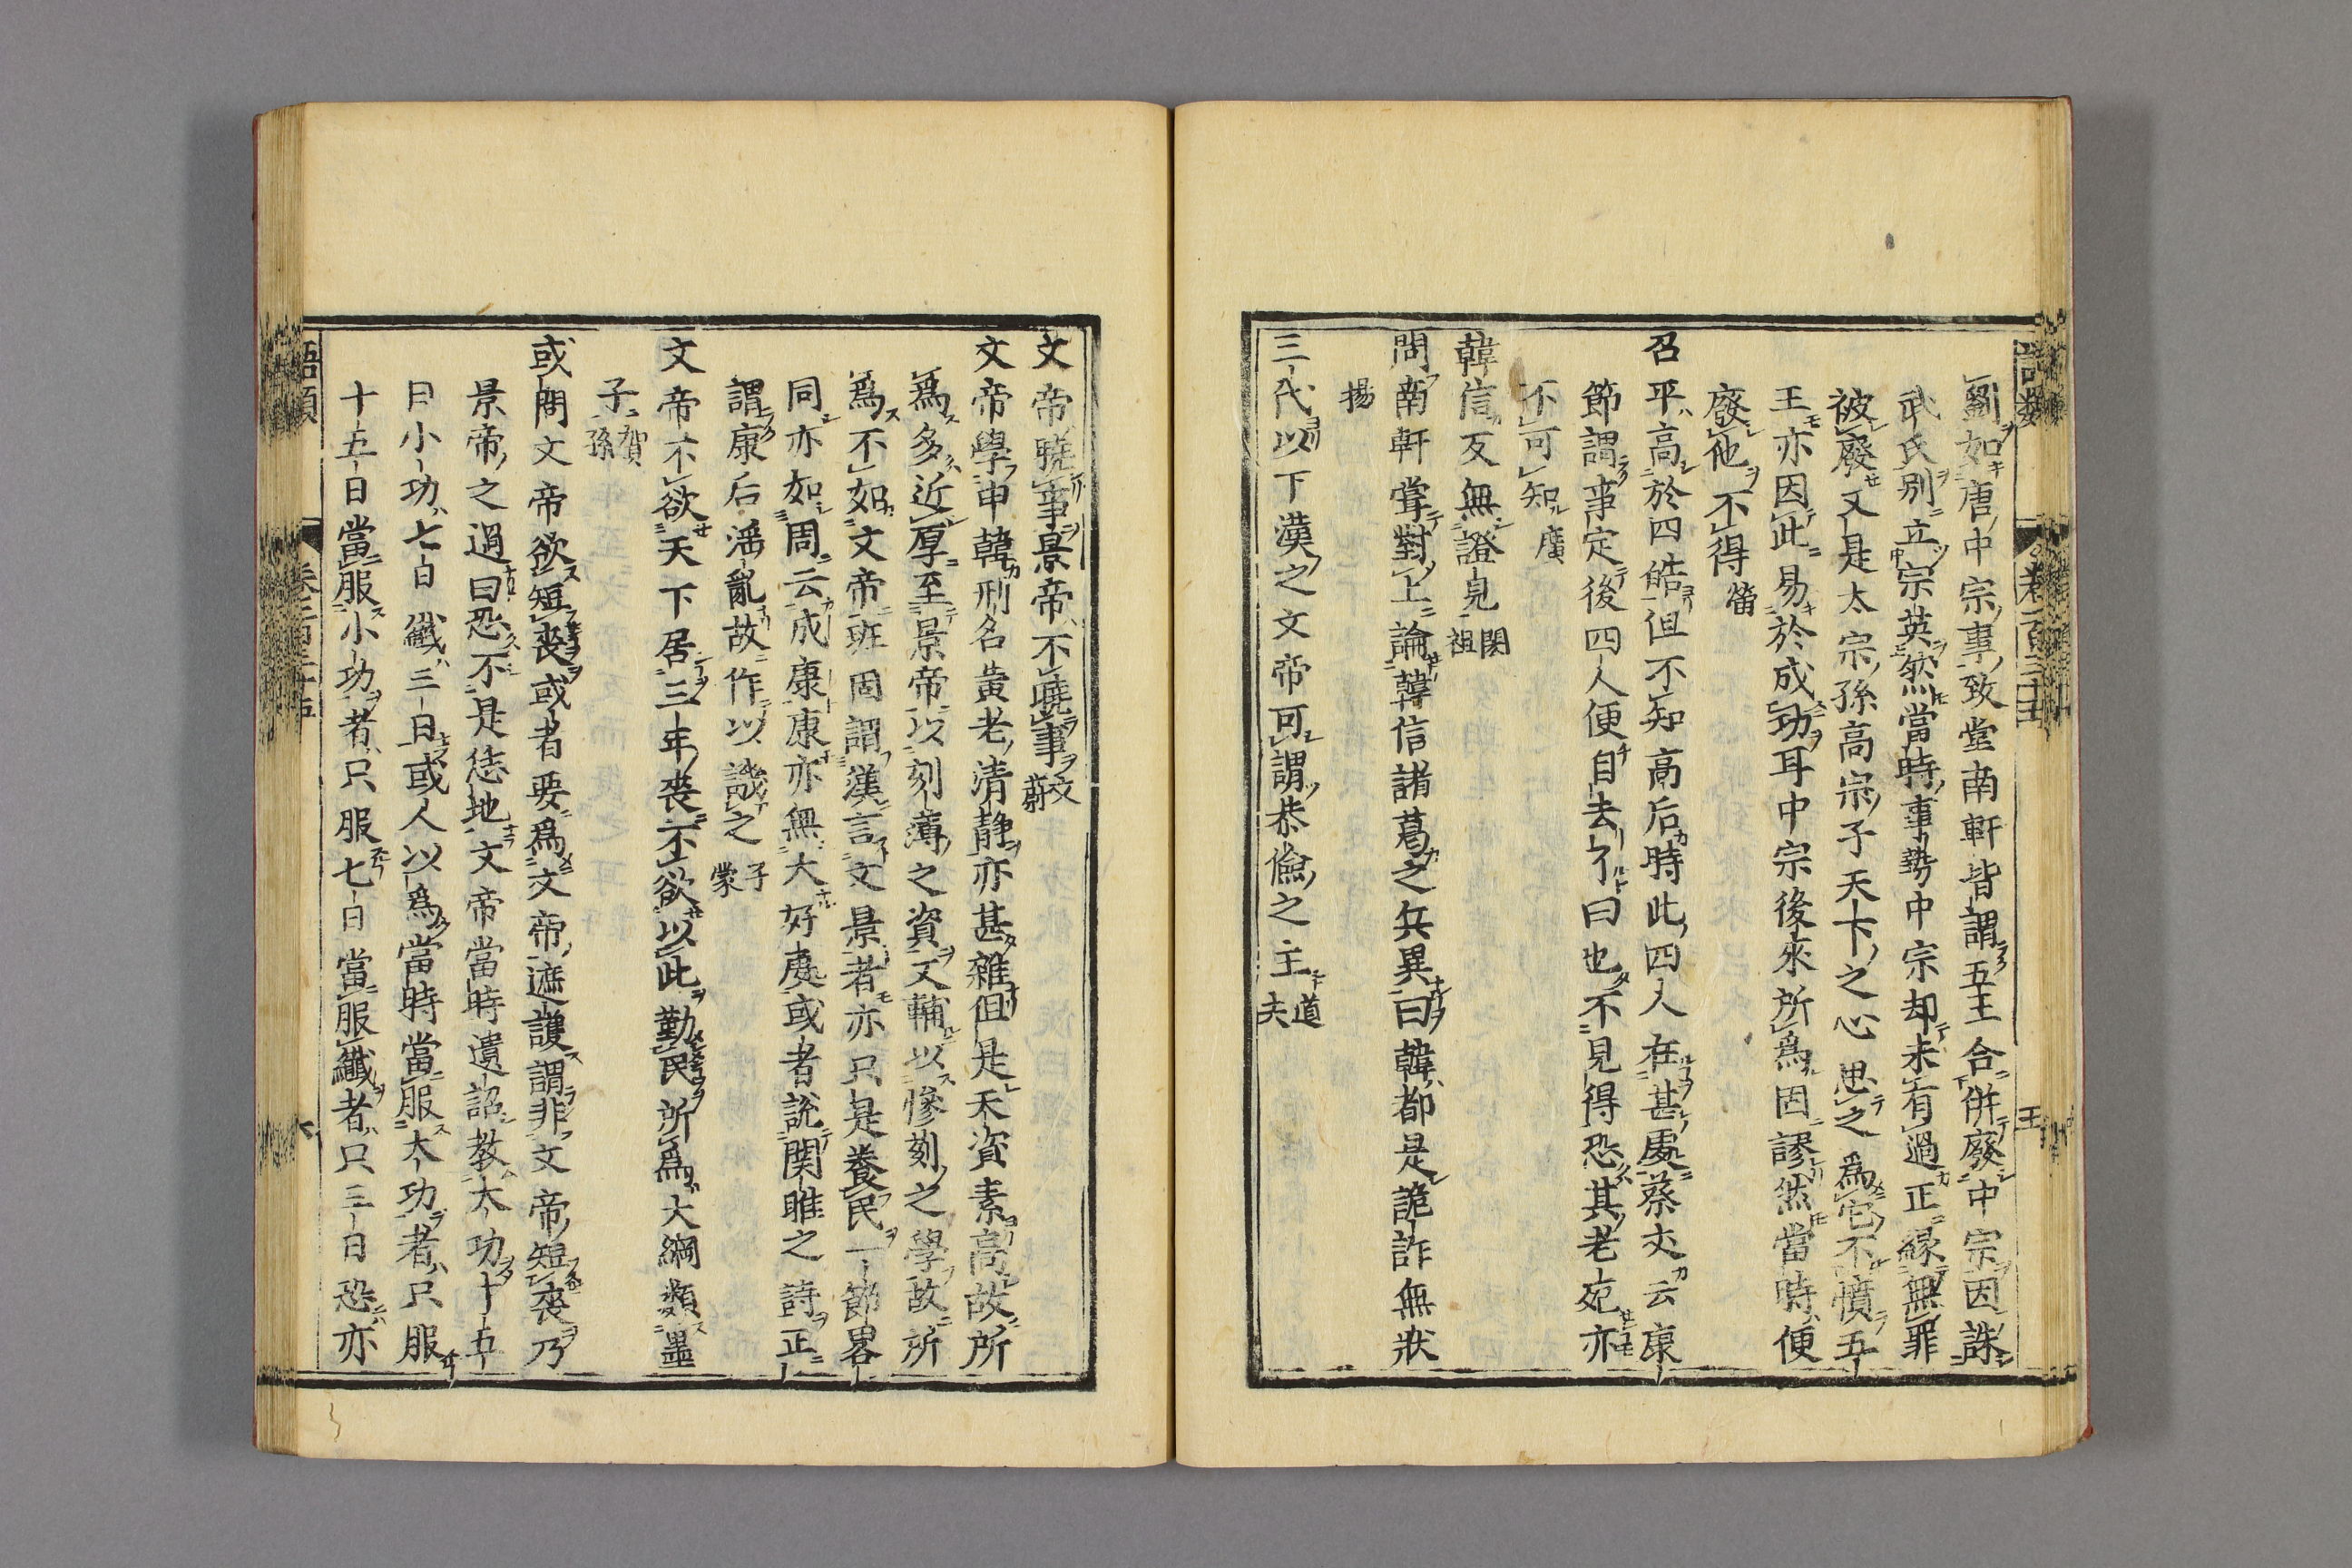 語類
卷一百三十五
五
劉如唐中宗事致堂南軒皆謂五王合併廢中宗因誅
武氏別立宗英然當時事勢中宗却未有過正緣無罪
被廢又是太宗孫高宗子天下之心思之爲它不憤五
王亦因此易於成功耳中宗後來所爲固謬然當時便
廢他不得㽦
召平高於四皓但不知高后時此四人在甚處蔡丈云康
節謂事定後四人便自去了曰也不見得恐其老死亦
不可知廣
韓信反無證見閎祖
問南軒嘗對上論韓信諸葛之兵異曰韓都是詭詐無狀
揚
三代以下漢之文帝可謂恭儉之主道夫
文帝曉事景帝不曉事文蔚
文帝學申韓刑名黃老清靜亦甚雜但是天資素高故所
爲多近厚至景帝以刻薄之資又輔以慘刻之學故所
爲不如文帝班固謂漢言文景者亦只是養民一節畧
同亦如周云成康康亦無大好處或者說關雎之詩正
謂康后淫亂故作以譏之子蒙
文帝不欲天下居三年喪不欲以此勤民所爲大綱類墨
子賀孫
或問文帝欲短喪或者要爲文帝遮護謂非文帝短喪乃
景帝之過曰恐不是恁地文帝當時遺詔教大功十五
日小功七日纖三日或人以爲當時當服大功者只服
十五日當服小功者只服七日當服纖者只三日恐亦
語類
卷一百三十五
六